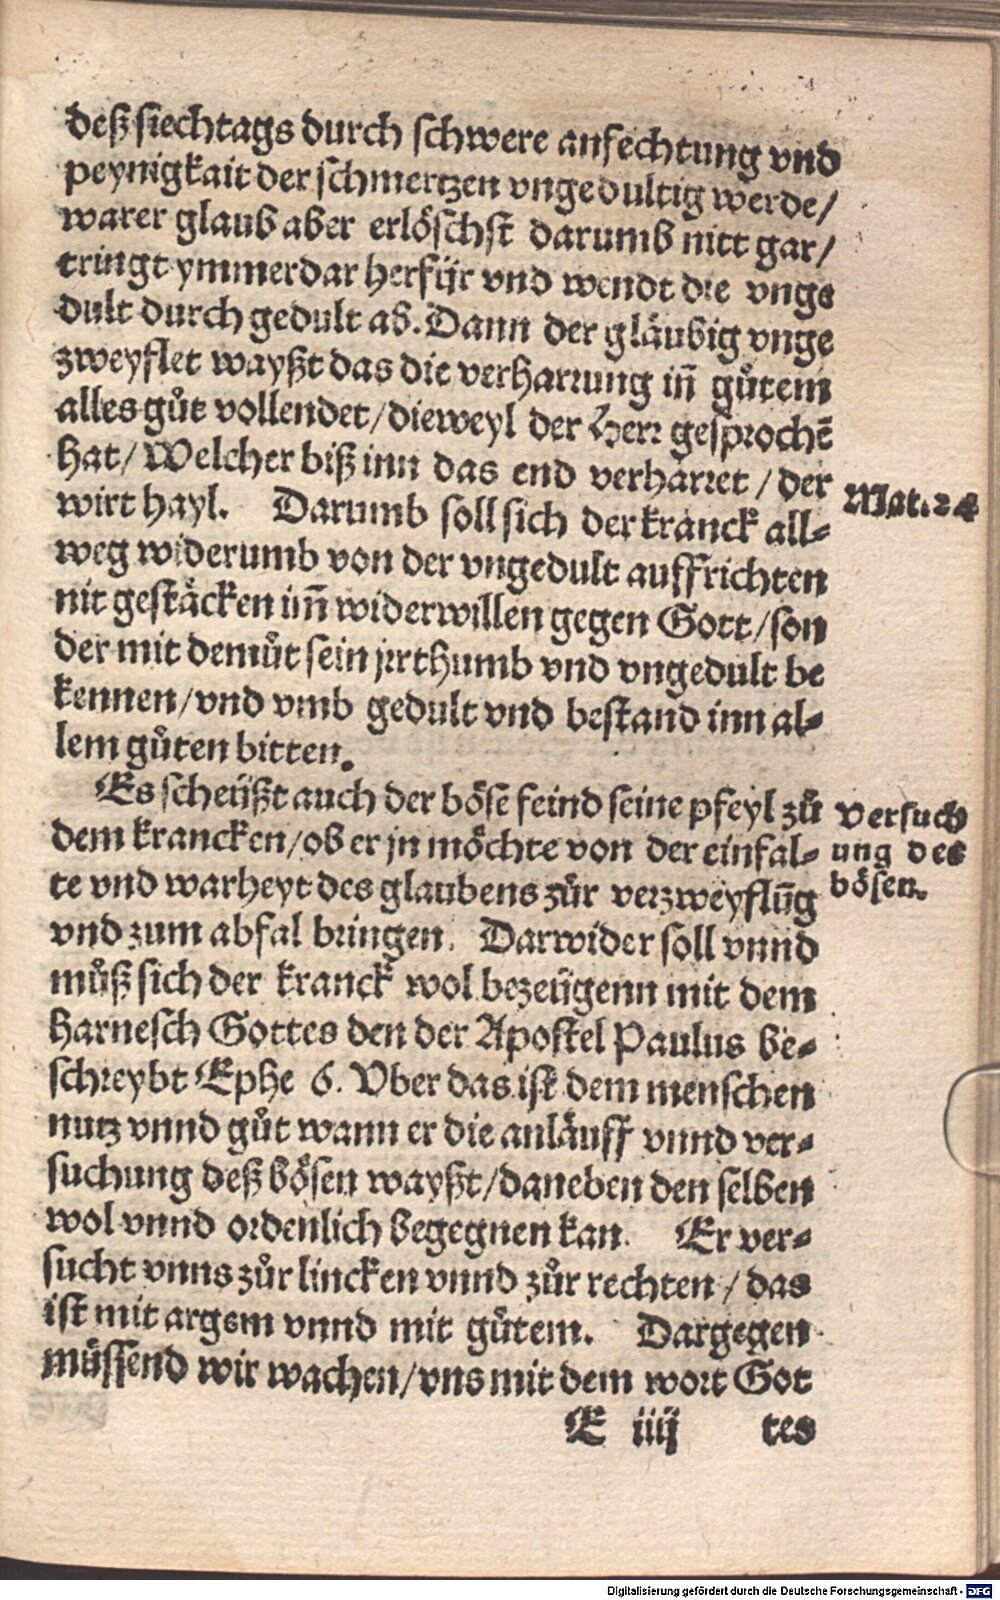 deß siechtags durch schwere anfechtung vnd
peynigkait der schmertzen vngedultig werde/
warer glaub aber erlöschst darumb nitt gar/
tringt ymmerdar herfür vnd wendt die vnge
dult durch gedult ab. Dann der gläubig vnge
zweyflet wayßt das die verharrung iñ gůtem
alles gůt vollendet/dieweyl der Herr gesprochẽ
hat/Welcher biß inn das end verharret/der
wirt hayl. Darumb soll sich der kranck all-
Mat.24
weg widerumb von der vngedult auffrichten
nit gestäcken iñ widerwillen gegen Gott/son
der mit demůt sein jrrthumb vnd vngedult be
kennen/vnd vmb gedult vnd bestand inn al-
lem gůten bitten.
Es scheüßt auch der böse feind seine pfeyl zů
dem krancken/ob er jn möchte von der einfal-
te vnd warheyt des glaubens zůr verzweyflũg
Versuch
ung des
bösen.
vnd zum abfal bringen. Darwider soll vnnd
můß sich der kranck wol bezeügenn mit dem
harnesch Gottes den der Apostel Paulus be-
schreybt Ephe 6. Vber das ist dem menschen
nutz vnnd gůt wann er die anläuff vnnd ver-
suchung deß bösen wayßt/daneben den selben
wol vnnd ordenlich begegnen kan. Er ver-
sucht vnns zůr lincken vnnd zůr rechten/das
ist mit argem vnnd mit gůtem. Dargegen
müssend wir wachen/vns mit dem wort Got
E iiij tes
Digitalisierung gefördert durch die Deutsche Forschungsgemeinschaft - DFG